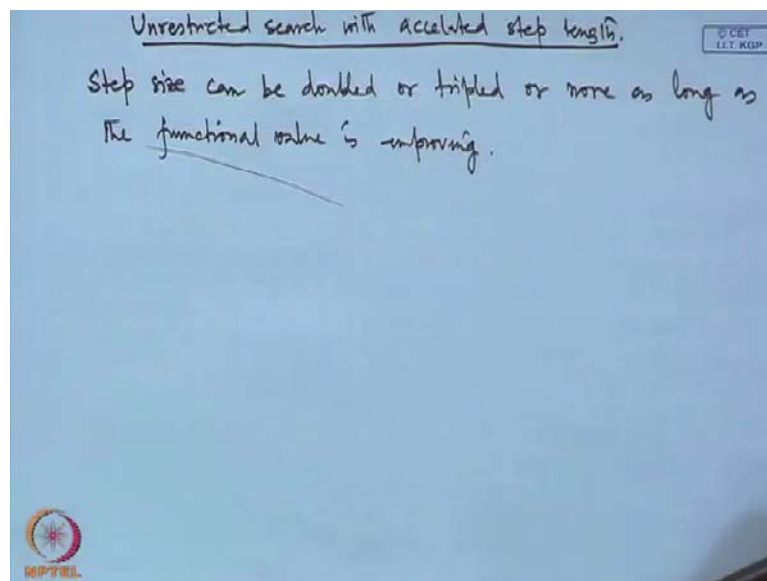 Unrestricted search with accelated step length.
© CET
I.I.T. KGP
Step size can be doubled or tripled or more as long as
The functional value is improving.
NPTEL